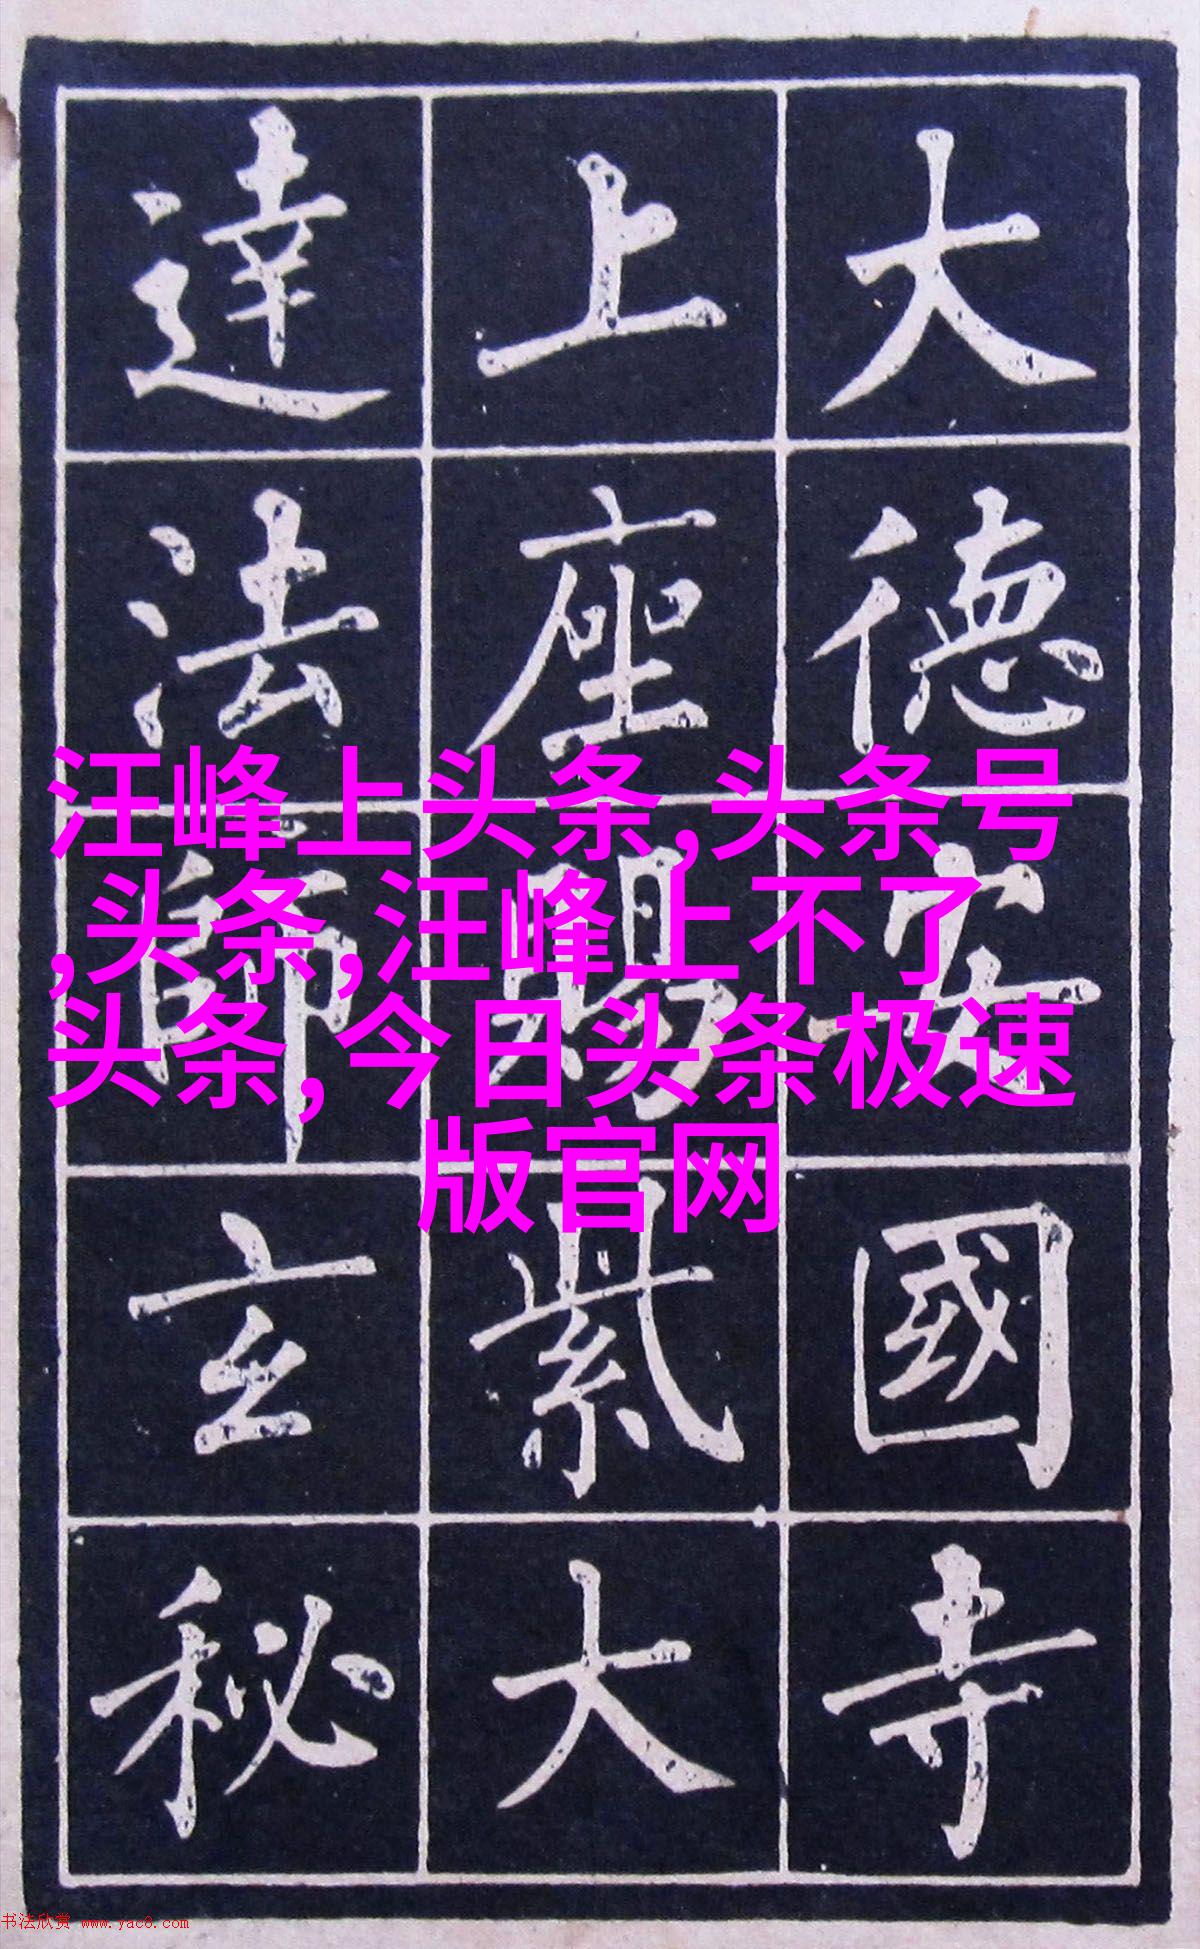 大徳安國寺
上座賜紫大
達法師玄秘
汪峰上头条,头条号
,头条,汪峰上不了
头条,今日头条极速
版官网
书法欣赏 www.yac8.com